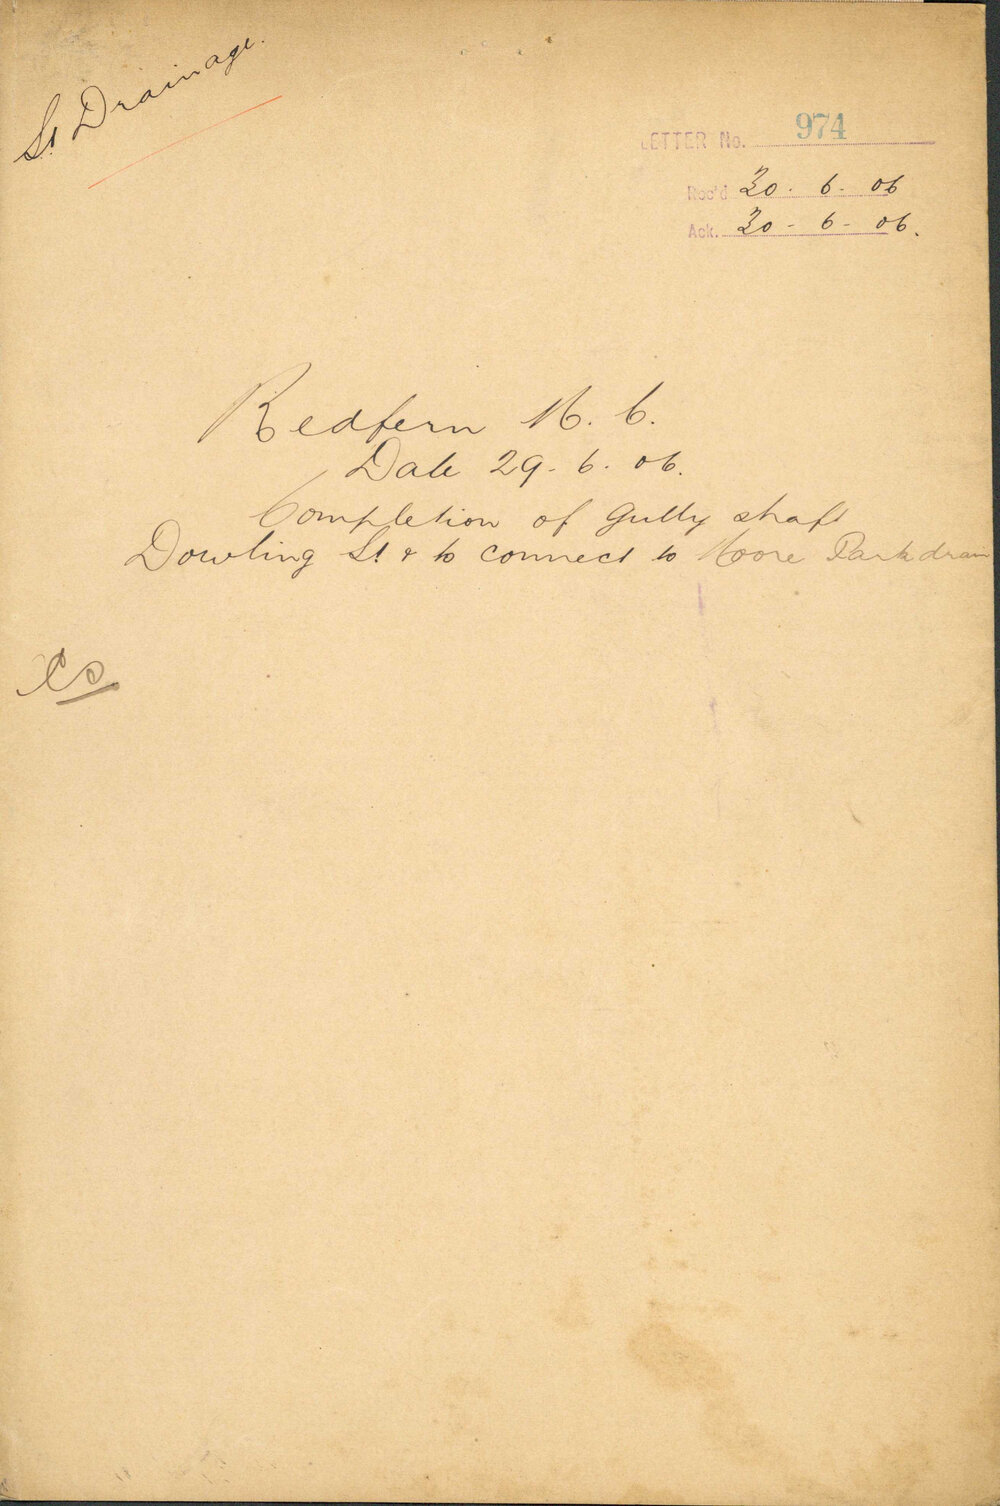 St Drainage.
LETTER No. 974
Rec'd 30. 6. 06
Ack. 30 - 6 - 06.
Redfern M. C.
Date 29. 6. 06.
Completion of Gully shaft
Dowling St & to connect to Moore Park drain